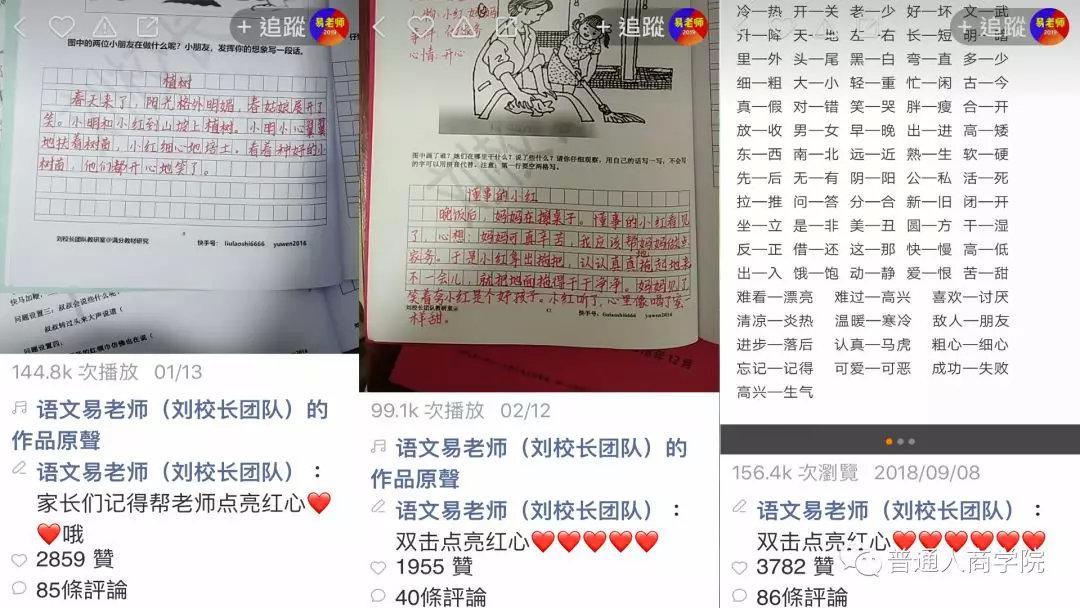 + 追蹤
易老师
2019
图中的两位小朋友在做什么呢？小朋友，发挥你的想象写一段话。
植树
春天来了，阳光格外明媚，春姑娘展开了
笑。小明和小红到山坡上植树。小明小心翼翼
地扶着树苗，小红细心地培土，看着种好的小
树苗，他们都开心地笑了。
刘校长团队教研室@满分教材研究
快手号： liulaoshi6666 yuwen2016
问题设置三：叔叔会说些什么呢？
叔叔转过头来大声说道（
问题设置四：
144.8k 次播放 01/13
语文易老师（刘校长团队）的
作品原聲
语文易老师（刘校长团队）：
家长们记得帮老师点亮红心❤️
❤️哦
2859 贊
85條評論
+ 追蹤
易老师
2019
心情：开心
图中画了谁？她们在哪里干什么？说了些什么？请你仔细观察，用自己的话写一写，不会写
的字可以用拼音代替。注意：第一行要空两格写。
懂事的小红
晚饭后，妈妈在擦桌子。懂事的小红看见
了，心想：妈妈可真辛苦，我应该帮妈妈做点
家务。于是小红拿出拖把，认认真真地拖起地来
不一会儿，就把地面拖得干干净净。妈妈见了
笑着夸小红是个好孩子。小红听了，心里像喝了蜜一
样甜。
刘校长团队教研室
42
快手号：liulaoshi6666 yuwen2016
年12月
99.1k 次播放 02/12
语文易老师（刘校长团队）的
作品原聲
语文易老师（刘校长团队）：
双击点亮红心❤️❤️❤️❤️❤️
1955 贊
40條評論
+ 追蹤
易老师
2019
冷—热 开—关 老—少 好—坏 文—武
升—降 天—地 左—右 长—短 明—暗
里—外 头—尾 黑—白 弯—直 多—少
细—粗 大—小 轻—重 忙—闲 古—今
真—假 对—错 笑—哭 胖—瘦 合—开
放—收 男—女 早—晚 出—进 高—矮
东—西 南—北 远—近 熟—生 软—硬
先—后 无—有 阴—阳 公—私 活—死
拉—推 问—答 分—合 新—旧 闭—开
坐—立 是—非 美—丑 圆—方 干—湿
反—正 借—还 这—那 快—慢 高—低
出—入 饿—饱 动—静 爱—恨 苦—甜
难看—漂亮 难过—高兴 喜欢—讨厌
清凉—炎热 温暖—寒冷 敌人—朋友
进步—落后 认真—马虎 粗心—细心
忘记—记得 可爱—可恶 成功—失败
高兴—生气
156.4k 次瀏覽 2018/09/08
语文易老师（刘校长团队）：
双击点亮红心❤️❤️❤️❤️❤️❤️
3782 贊
86條評論
普通人商学院